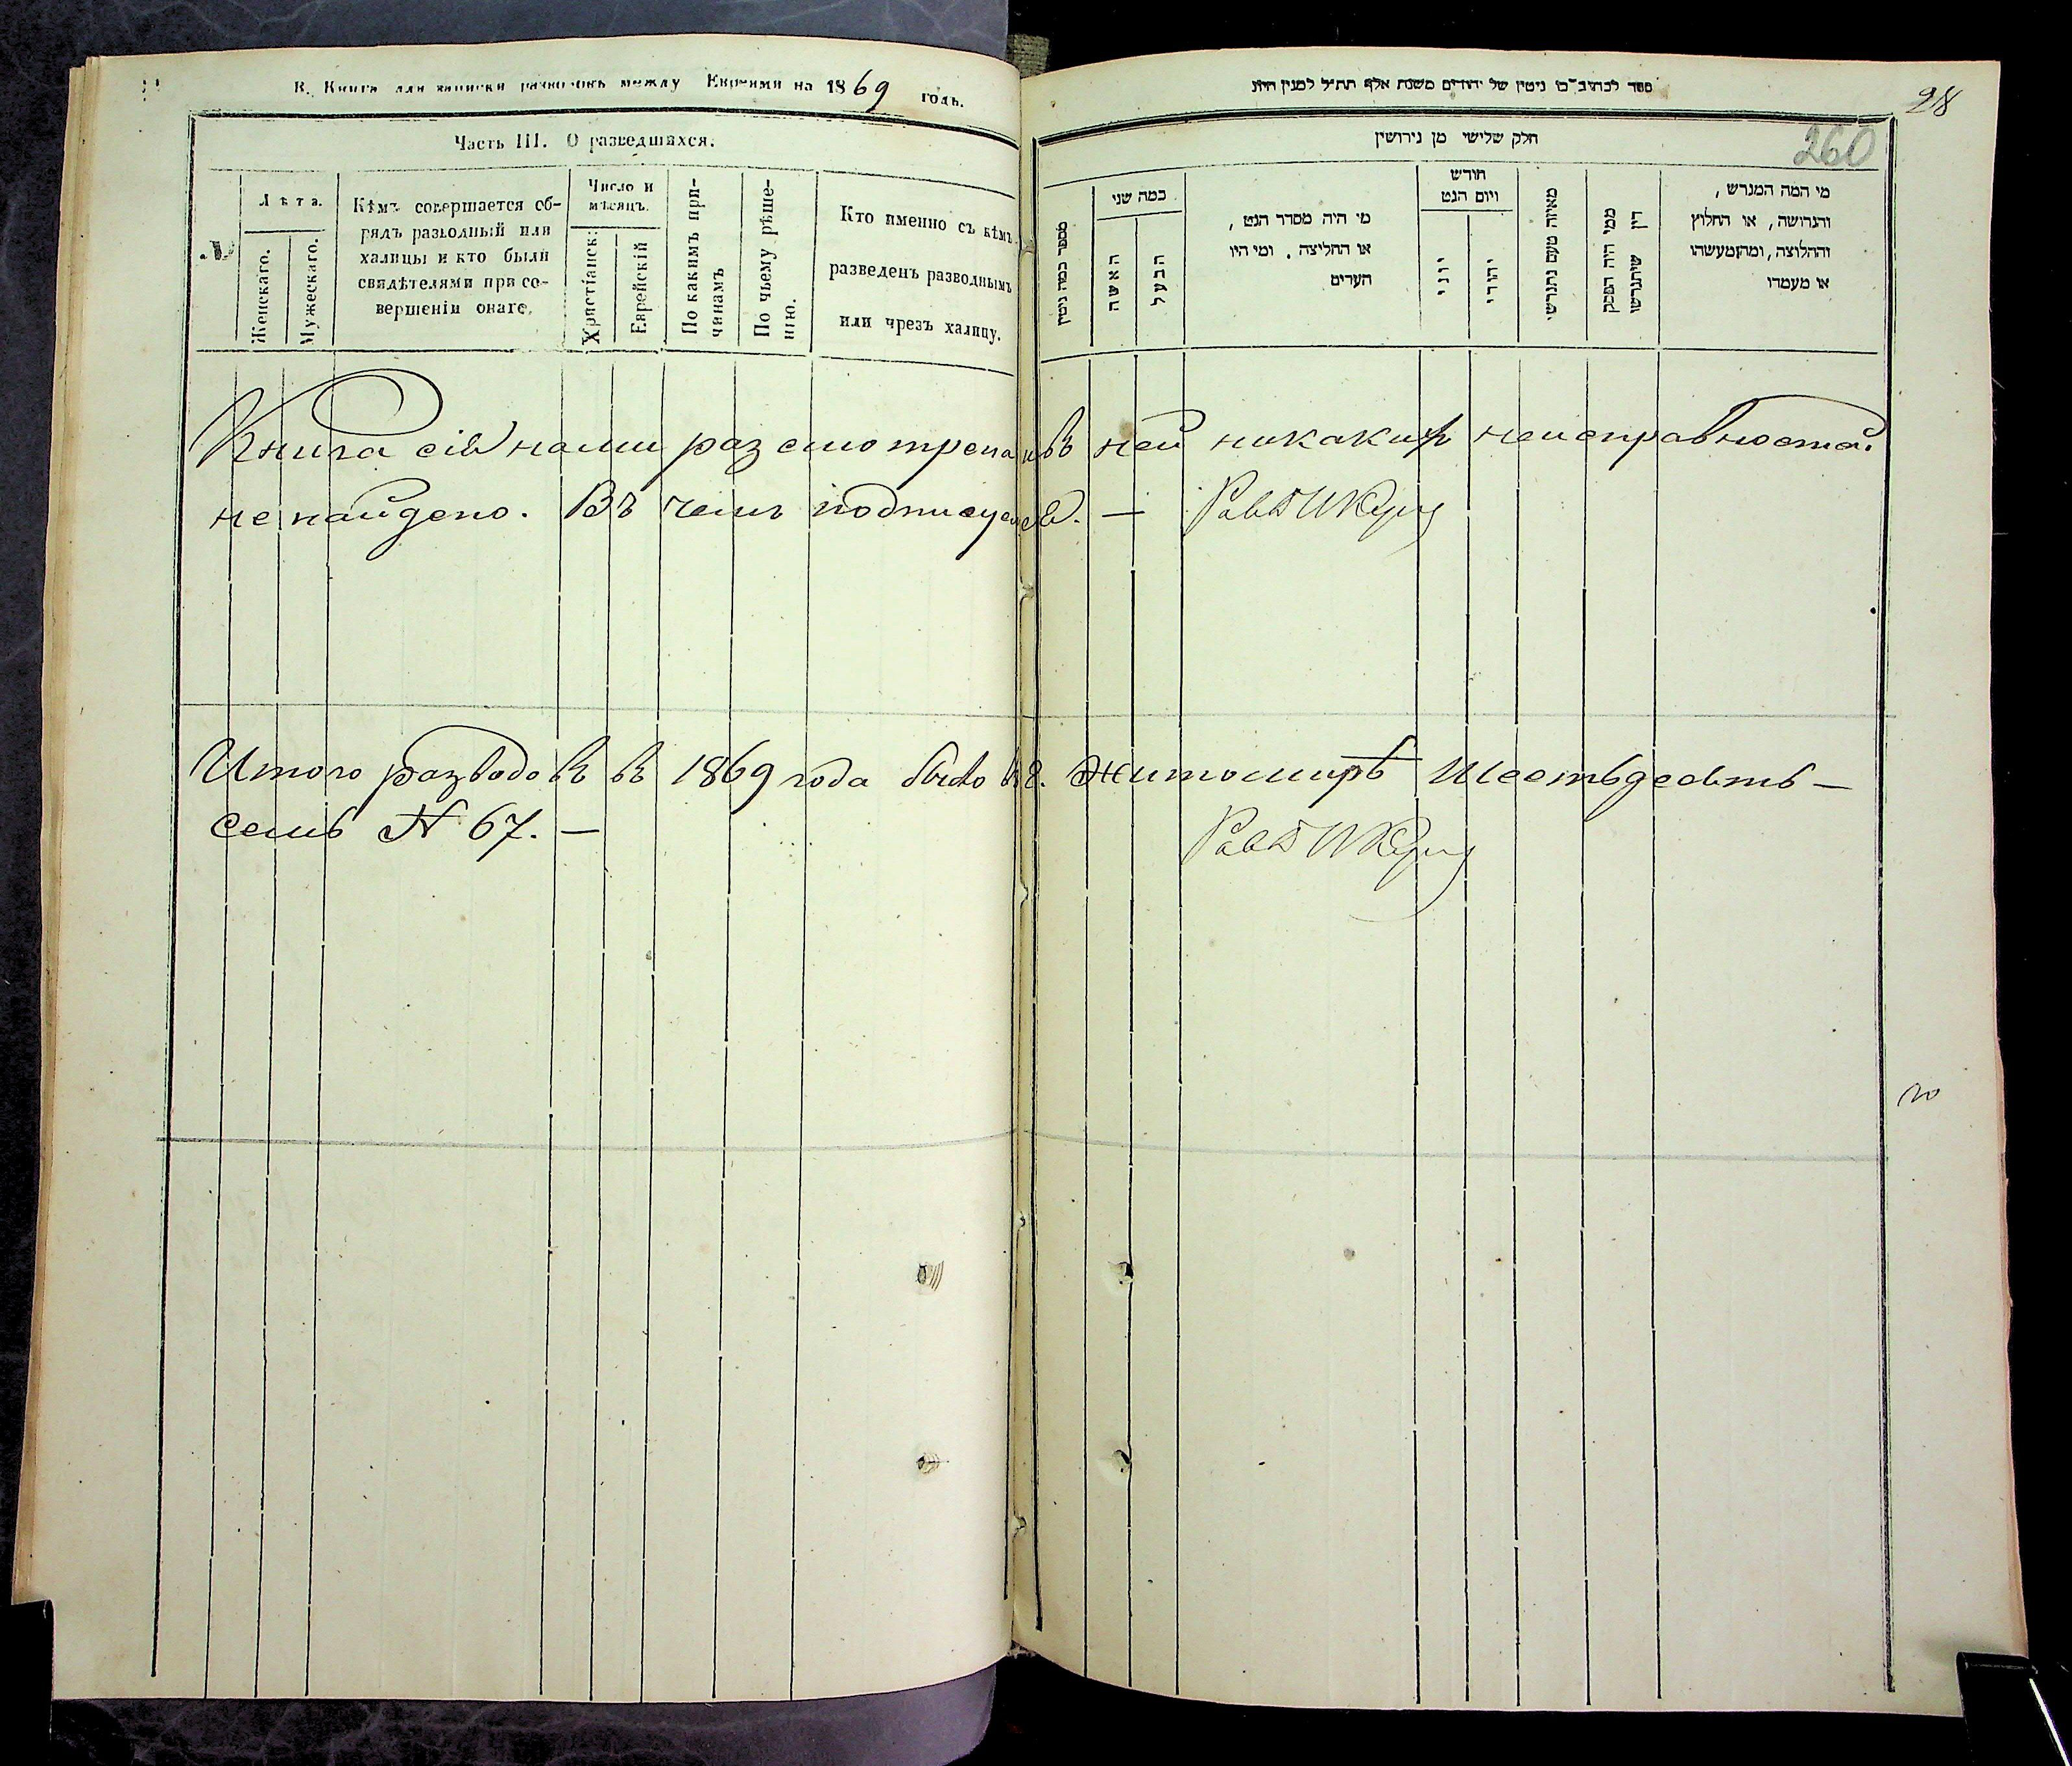 В. Книга для записки разводовъ между Евреями на 1869 годъ.
Часть III. О разведшихся.
№
Лѣта.
Женскаго.
Мужескаго.
Кѣмъ совершается об-
рядъ разводный или
халицы и кто были
свидѣтелями при со-
вершеніи онаго.
Число и
мѣсяцъ.
Христіанск:
Еврейскій
По какимъ при-
чинамъ
По чьему рѣше-
нію.
Кто именно съ кѣмъ
разведенъ разводнымъ
или чрезъ халицу.
28
260
חלק שלישי מן גירושין
במה שני
האשה
הבעל
מי היה מסדר הגט,
או החליצה. ומי היו
העדים
חודש
ויום הגט
יוני
יהודי
מאיזה טעם נתגרשו
ממי היה הפסק
דין שיתגרשו
מי המה המגרש,
והגרושה, או החלוץ
והחלוצה, ומה מעשהו
או מעמדו
Книга сія нами разсмотрена и въ ней никакихъ неисправностей
не найдено. Въ чемъ подписуемся. —
Итого разводовъ въ 1869 года было въ г. Житомирѣ Шестьдесять —
семь № 67. —